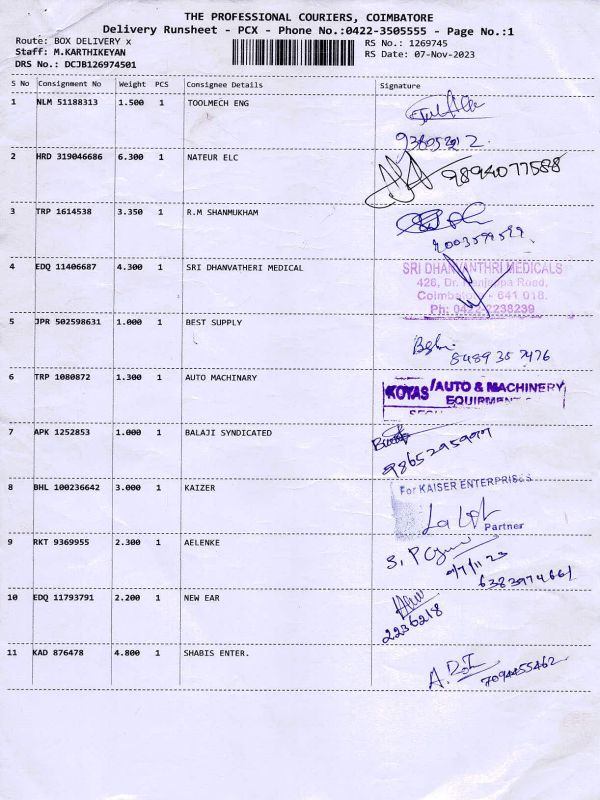 THE PROFESSIONAL COURIERS, COIMBATORE
Delivery Runsheet - PCX - Phone No.:0422-3505555 - Page No.:1
Route: BOX DELIVERY x
RS No.: 1269745
Staff: M.KARTHIKEYAN
RS Date: 07-Nov-2023
DRS No.: DCJB126974501
S No Consignment No Weight PCS Consignee Details Signature
1 NLM 51188313 1.500 1 TOOLMECH ENG
2 HRD 319046686 6.300 1 NATEUR ELC
9894077588
3 TRP 1614538 3.350 1 R.M SHANMUKHAM
4 EDQ 11406687 4.300 1 SRI DHANVATHERI MEDICAL
SRI DHANVANTHRI MEDICALS
426, Dr. Road,
641 018.
Ph: 0422-2238239
5 JPR 502598631 1.000 1 BEST SUPPLY
8489357476
6 TRP 1080872 1.300 1 AUTO MACHINARY
KOYAS AUTO & MACHINERY
7 APK 1252853 1.000 1 BALAJI SYNDICATED
8 BHL 100236642 3.000 1 KAIZER
For KAISER ENTERPRISES
Partner
9 RKT 9369955 2.300 1 AELENKE
6383974661
10 EDQ 11793791 2.200 1 NEW EAR
2236218
11 KAD 876478 4.800 1 SHABIS ENTER.
7094455462